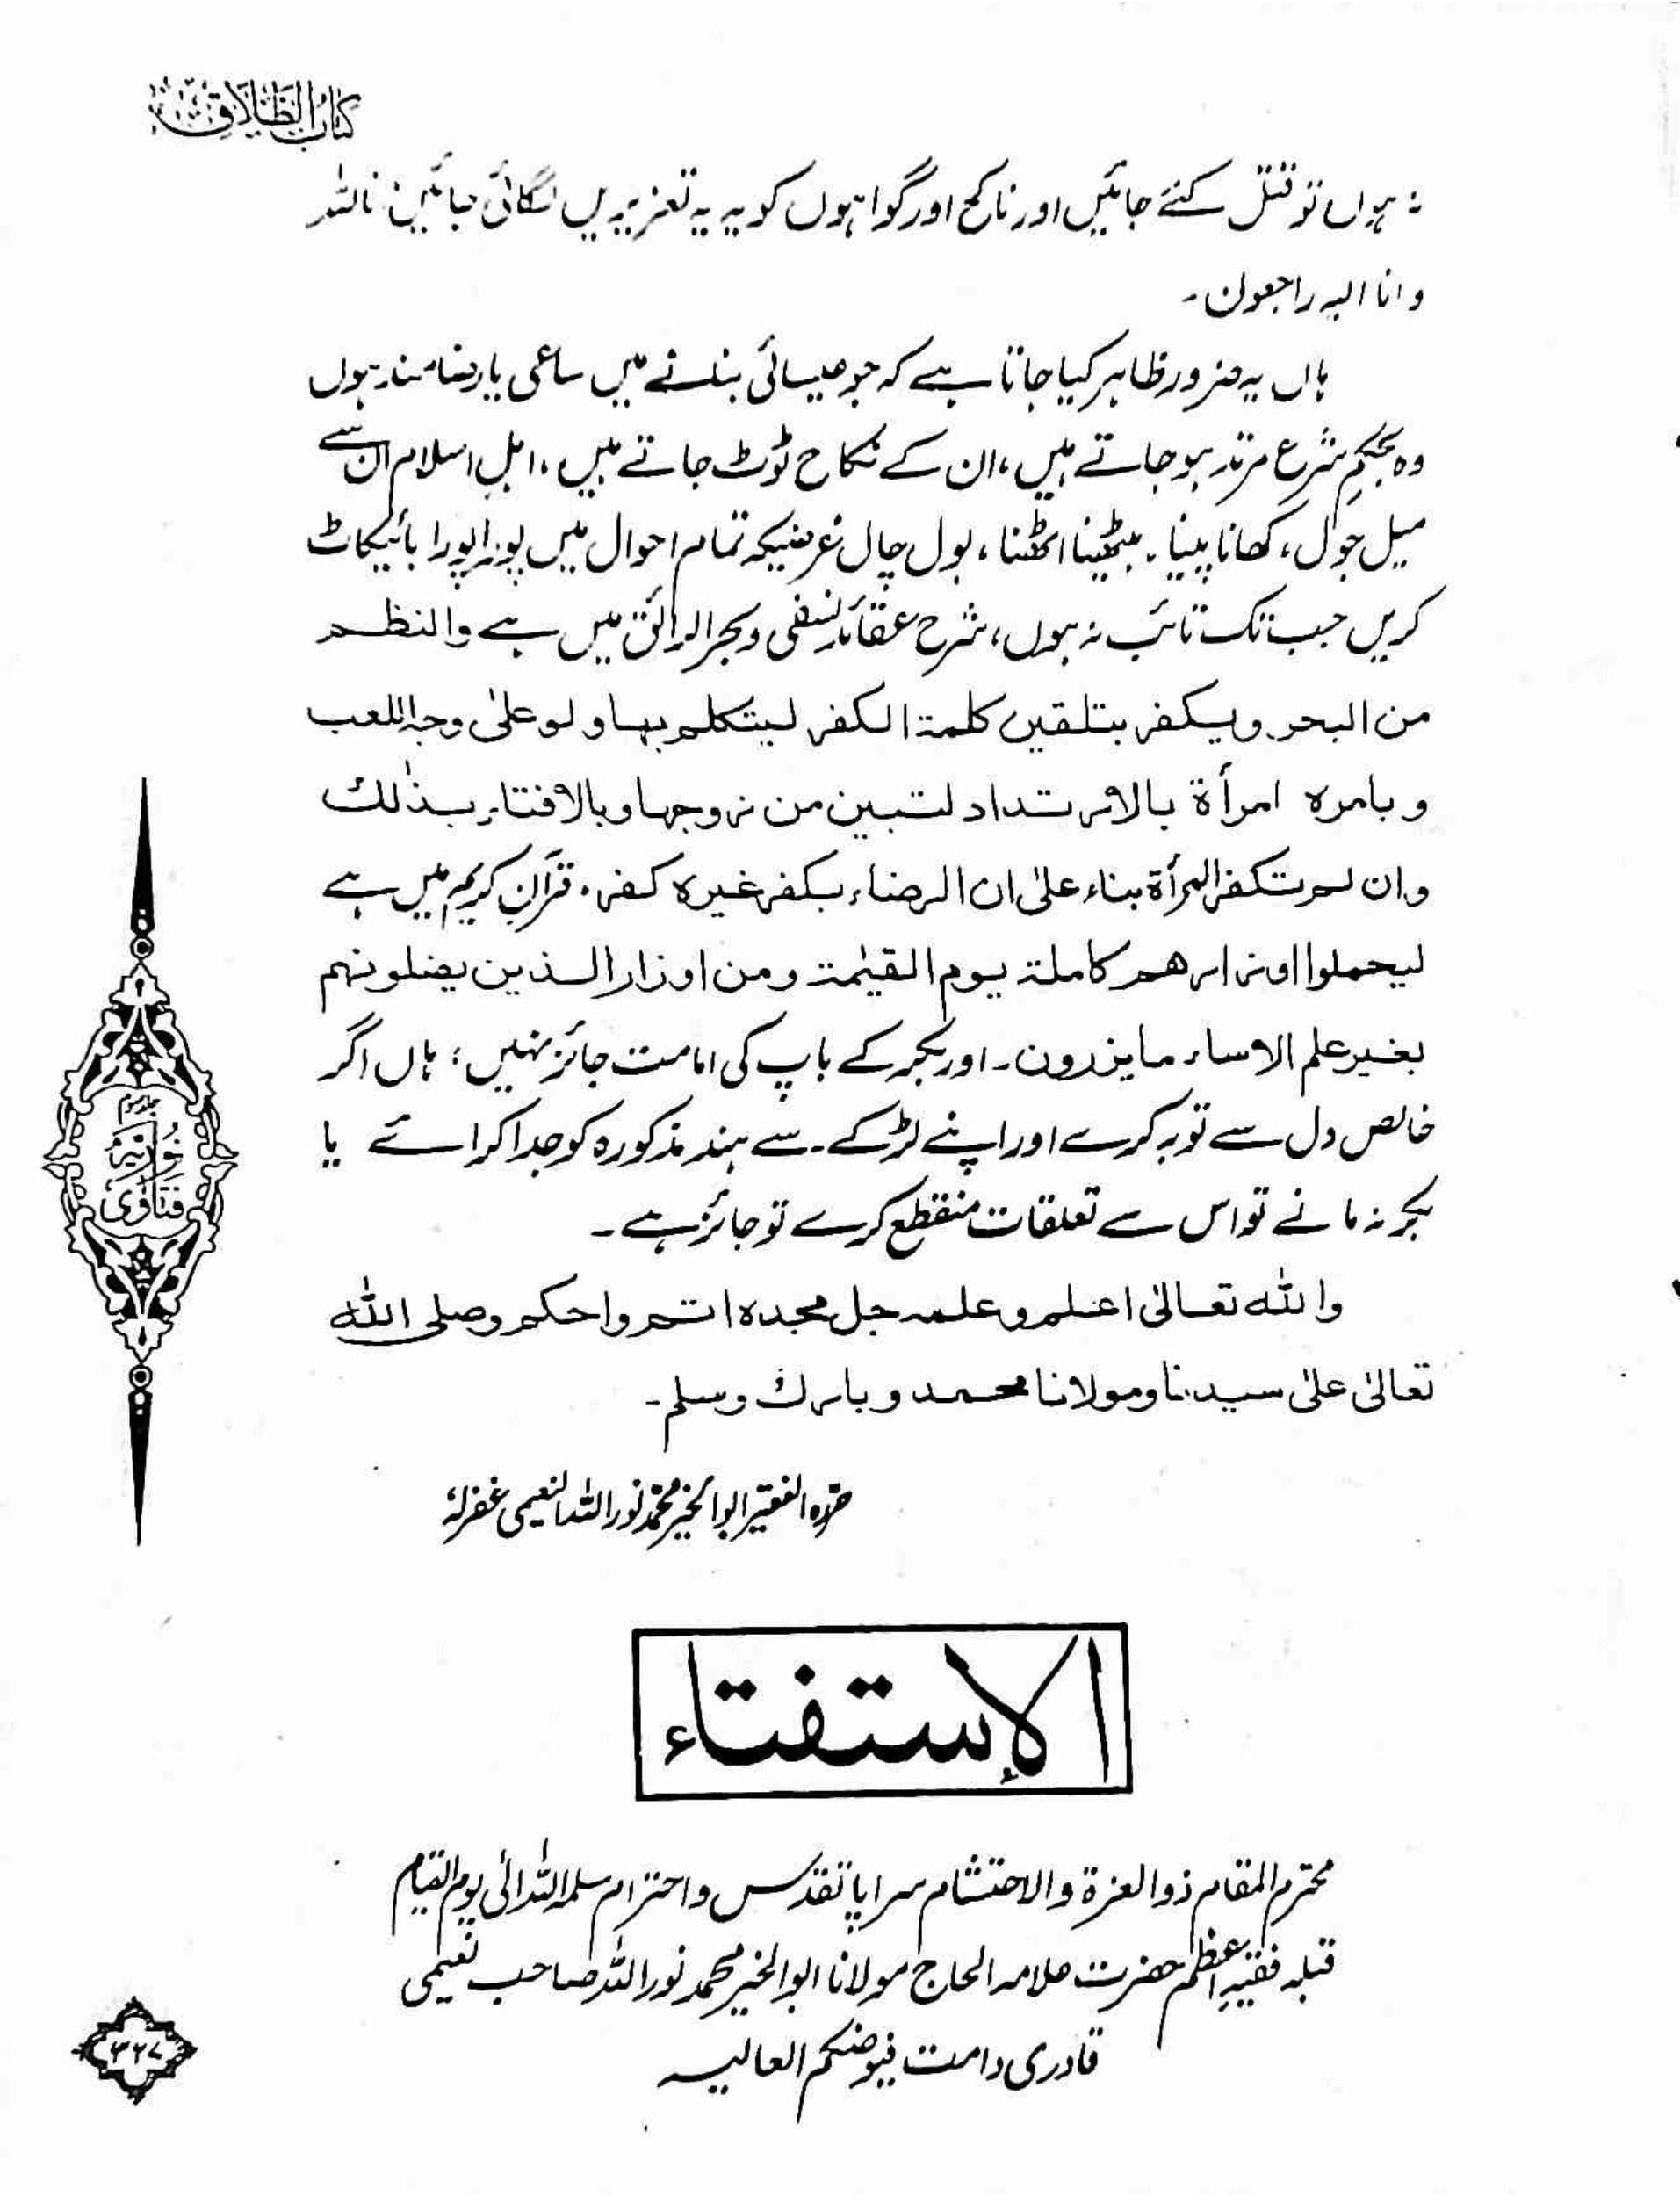 کتاب الطلاق
نہ ہوں تو قتل کئے جائیں اور ناکح اور گواہوں کو یہ یہ تعزیریں لگائی جائیں فانا للہ
و انا الیہ راجعون۔
ہاں یہ ضرور ظاہر کیا جاتا ہے کہ جو عیسائی بننے میں ساعی یا رضامند ہوں
وہ بحکمِ شرع مرتد ہو جاتے ہیں، ان کے نکاح ٹوٹ جاتے ہیں، اہلِ اسلام ان سے
میل جول، کھانا پینا، بیٹھنا اٹھنا، بول چال غرضیکہ تمام احوال میں پورا پورا بائیکاٹ
کریں جب تک تائب نہ ہوں، شرح عقائد نسفی و بحر الرائق میں ہے والنظم
من البحر ویکفر بتلقین کلمۃ الکفر لیتکلم بہا ولو علیٰ وجہ اللعب
و بامرہ امرأۃ بالارتداد لتبین من زوجہا وبالافتاء بذٰلک
وان لم تکفر المرأۃ بناء علیٰ ان الرضاء بکفر غیرہ کفر۔ قرآنِ کریم میں ہے
لیحملوا اوزارھم کاملۃ یوم القیٰمۃ ومن اوزار الذین یضلونہم
بغیر علم الاساء ما یزرون۔ اور بکر کے باپ کی امامت جائز نہیں، ہاں اگر
خالص دل سے توبہ کرے اور اپنے لڑکے۔ سے ہندہ مذکورہ کو جدا کرائے یا
بکر نہ مانے تو اس سے تعلقات منقطع کرے تو جائز ہے۔
واللہ تعالیٰ اعلم وعلمہ جل مجدہ اتم واحکم وصلی اللہ
تعالیٰ علیٰ سیدنا ومولانا محمد وبارك وسلم۔
حرّرہ الفقیر ابوالخیر محمد نور اللہ النعیمی غفرلہٗ
جلد سوم
فتاوٰی نوریہ
الإستفتاء
محترم المقام ذوالعزۃ والاحتشام سراپا تقدس واحترام سلمہ اللہ الیٰ یوم القیام
قبلہ فقیہِ اعظم حضرت علامہ الحاج مولانا ابوالخیر محمد نور اللہ صاحب نعیمی
قادری دامت فیوضکم العالیہ
۳۲۷